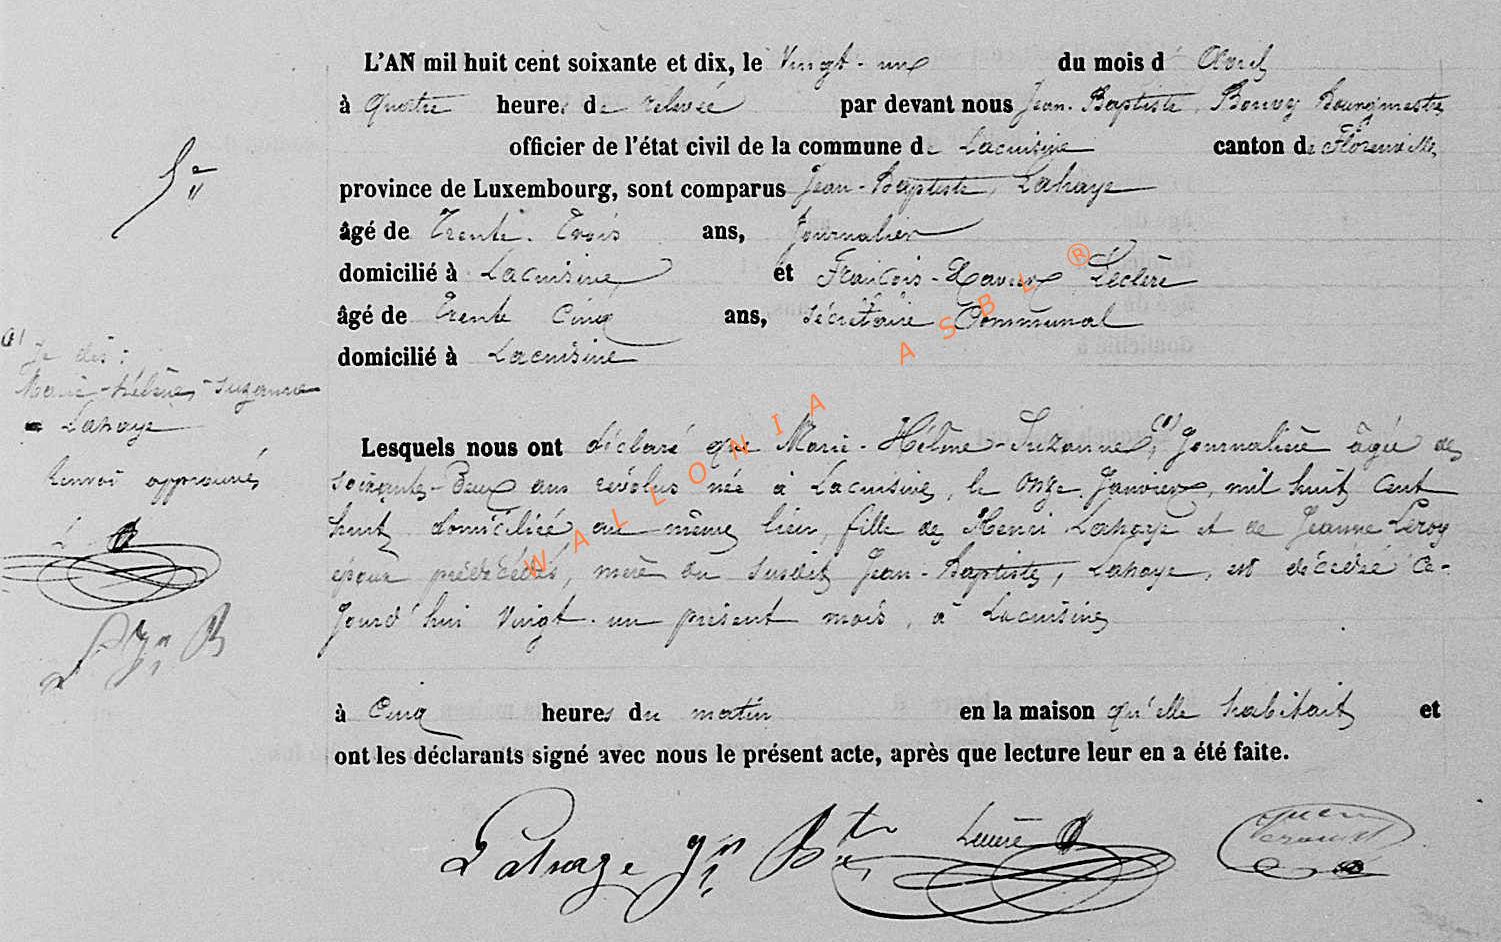 L'AN mil huit cent soixante et dix, le Vingt-un du mois d'Avril
à quatre heures de relevée par devant nous Jean-Baptiste, Bouvy Bourgmestre
officier de l'état civil de la commune de Lacuisine canton de Florenville
5e
province de Luxembourg, sont comparus Jean-Baptiste, Lahaye
âgé de Trente-Trois ans, Journalier
domicilié à Lacuisine et François-Xavier Leclère
âgé de Trente Cinq ans, Sécrétaire Communal
domicilié à Lacuisine
(1) Je dis:
Marie-Hélène-Suzanne
Lahaye
Renvoi approuvé
L
Lesquels nous ont déclaré que Marie-Hélène-Suzanne, (1) Journalière âgée de
soixante-Deux ans révolus née à Lacuisine, le Onze Janvier, mil huit cent
huit domiciliée au même lieu, fille de Henri Lahaye et de Jeanne Leroy
époux prédécédés, mère du susdit Jean-Baptiste, Lahaye, est décédée ce-
jourd'hui Vingt-un présent mois, à Lacuisine
à Cinq heures du matin en la maison qu'elle habitait et
ont les déclarants signé avec nous le présent acte, après que lecture leur en a été faite.
Lahaye Jn Bte Leclère
WALLONIA ASBL ®